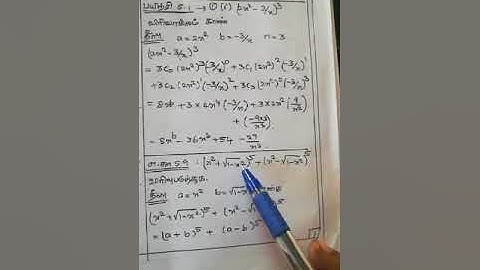 பயிற்சி 5.1 → ① (i) (2x² - 3/x)³
விரிவாக்கம் காண்
தீர்வு a = 2x² b = -3/x n = 3
(2x² - 3/x)³
= 3C₀ (2x²)³ (-3/x)⁰ + 3C₁ (2x²)² (-3/x)¹
+ 3C₂ (2x²)¹ (-3/x)² + 3C₃ (2x²)⁰ (-3/x)³
= 8x⁶ + 3 × 4x⁴ (-3/x) + 3 × 2x² (9/x²)
= 8x⁶ - 36x³ + 54 - 27/x³
5.9 : (x² + √1-x²)⁵ + (x² - √1-x²)⁵
தீர்வு a = x² b = √1-x²
(x² + √1-x²)⁵ + (x² - √1-x²)⁵
= (a + b)⁵ + (a - b)⁵